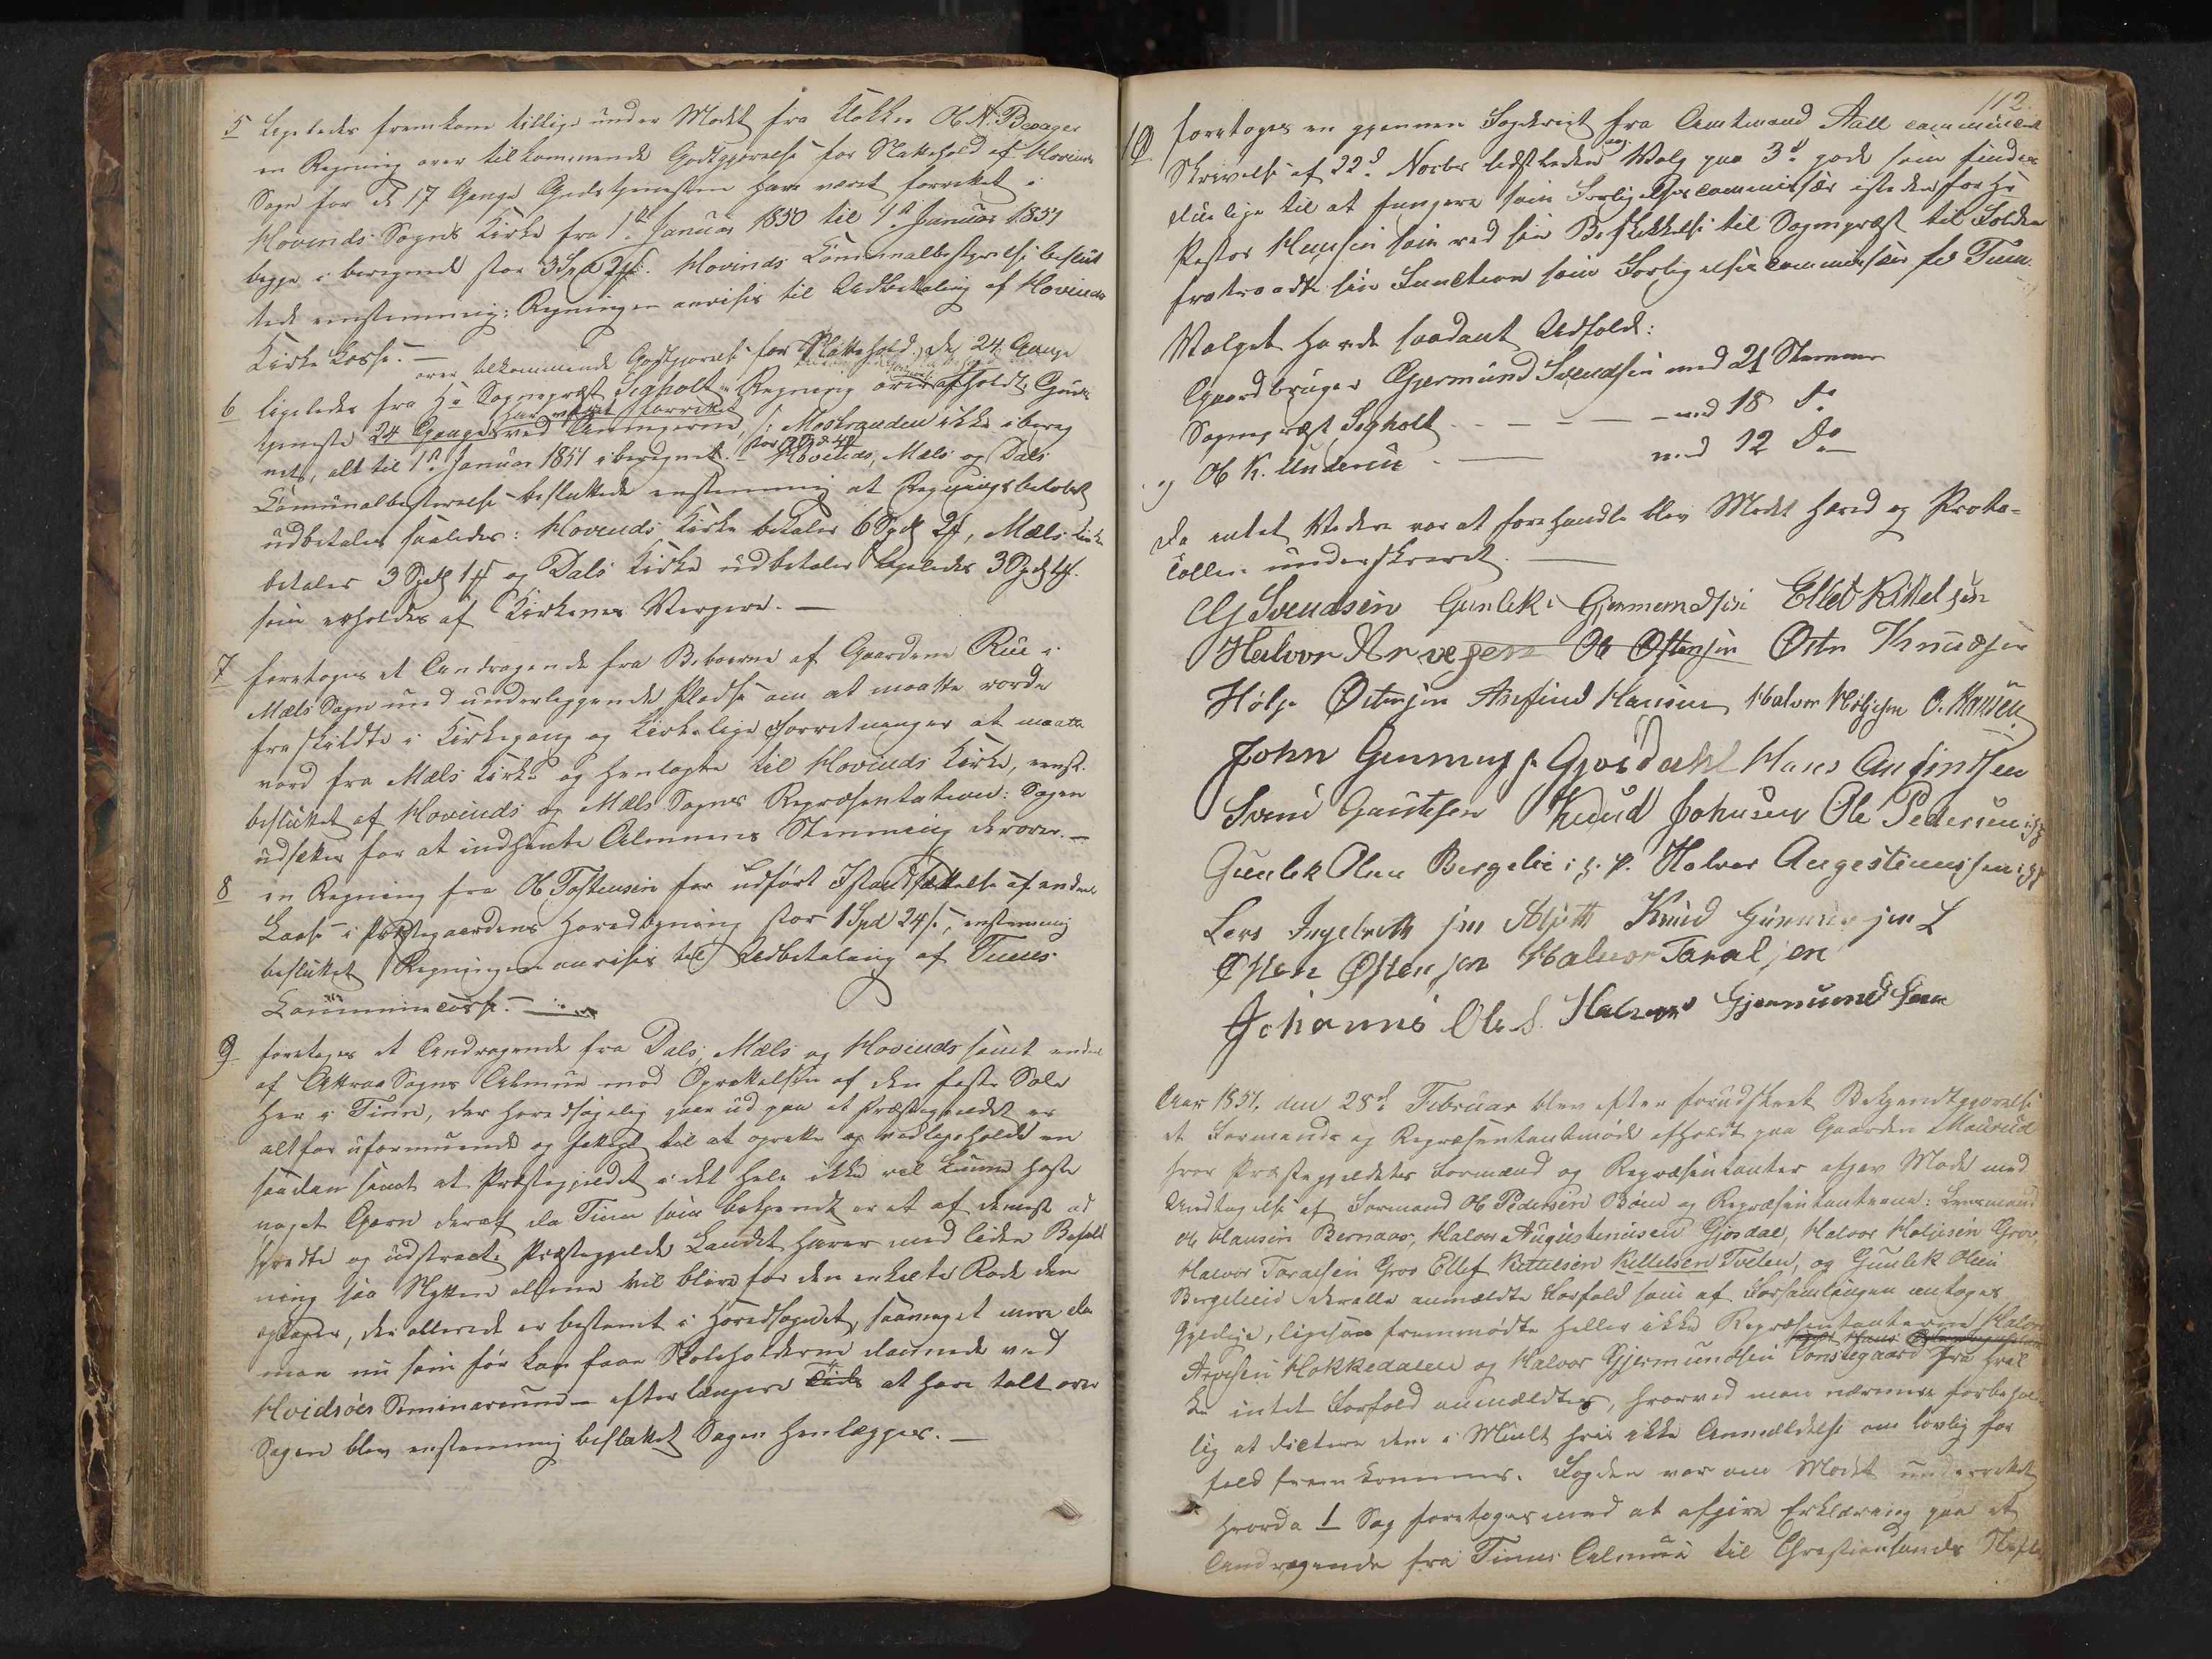 5 Ligeledes fremkom tillige under Modet fra Kokken Ob N. Bevager
en Regning over tilkommende Godtgjørelse for Skattehold af Hovinds
Sogn for de 17 Gange Gudstjenesten har været forrettet i
Hovinds Sogns Kirke fra 1ste Januar 1850 til 1ste Januar 1851
begge i beregnede stor 3 Spd 2. Hovinds Communalbestyrelse beslut
tede eenstemmig: Regningen anvises til Udbetaling af Hovinds
Kirke Casse. —
over tilkommende Godtgjørelse for Skattehold, de 24 Gange
6 ligeledes fra Hr Sognepræst Sigholt en Regning over afholdt Guds
har været forrettet
tjeneste 24 Gange ved Annexerne, Mostranden ikke ibereg
net, alt til 1ste Januar 1851 iberegnet. Hovinds, Mæls og Dals
Communalbestyrelse besluttede enstemmig at Regningsbeløbet
udbetales saaledes: Hovinds Kirke betaler 6 Spd 2, Mæls Kirke
betaler 3 Spd 1 og Dals Kirke udbetaler ligeledes 3 Spd
som erholdes af Kirkernes Verger. —
7 foretoges et Andragende fra Beboerne af Gaardene Rue i
Mæls Sogn med underliggende Pladse om at maatte vorde
fraskildte i Kirkegang og Kirkelige Forretninger at maatte
vord fra Mæls Kirke og henlagte til Hovinds Kirke, eenst.
besluttet af Hovinds og Mæls Sognes Repræsentation: Sagen
udsættes for at indhente Almuens Stemning derover. —
8 en Regning fra Ob Tostensen for udført Istandsættelse af endeel
Laase i Præstegaardens Hovedbygning stor 1 Spd 24, enstemmig
besluttet Regningen anvises til Udbetaling af Tinns
Communecasse. —
9 foretoges et Andragende fra Dals, Mæls og Hovinds samt endeel
af Attraa Sogns Almue mod Oprettelsen af den faste Skole
her i Tinn, der hovedsagelig gaar ud paa at Præstegjeldet er
altfor uformuende og fattigt til at oprette og vedligeholde en
saadan samt at Præstegjeldet i det hele ikke vel kunne høste
noget Gavn deraf da Tinn som bekjendt er et af de mest ad
spredte og udstrakte Præstegjelde Landet haver med liden Befolk
ning saa Nytten alene vil blive for den enkelte Rode den
optages, der allerede er bestemt i Hovedsagnet, saameget mere da
man nu som før kan faae Skoleholderne dannede ved
Hvidsøes Seminarium — efter længere Tids at have talt over
Sagen blev enstemmig besluttet Sagen henlægges. —
112.
10 foretoges en gjennem Fogderiet fra Amtmand Aall communiceret
Skrivelse af 22de Novbr sidstleden Valg paa 3de gode som finder
duelige til at fungere som Forligelsescommissær istedenfor Hr
Pastor Hansen som ved sin Beskikkelse til Sognepræst til Solden
fratraadte sin Function som Forligelsescommissær for Tinn.
Valget havde saadant Udfald:
Gaardbruger Gjermund Svendsen med 21 Stemmer
Sognepræst Sigholt — — — med 18 Do
og Ob K. Underue — med 12 Do
Da intet Videre var at forehandle blev Modet hævd og Proto-
collen underskrevet. —
G Svendsen Gunlek Gjermundsen Ellef Kittelsen
Halvor Arvesen Ob Østensen Østen Knudsen
Hølje Østensen Anfind Hansen Halvor Høljesen O. Hansen
John Gunnufs. Gjosdahl Hans Anfindsen
Svend Gautesen Knud Johnsen Ole Pedersen
Gunlek Olsen Bergelie Halvor Augestinussen
Lars Ingebreth sen Knud Gunnersen
Østen Østensen Halvor Taralsen
Johannis Ole S. Halvor Gjermundsen
Aar 1851, den 28de Februar blev efter forudskeet Bekjendtgjørelse
et Formands og Repræsentantmøde afholdt paa Gaarden Maurud
hvor Præstegjeldets Formænd og Repræsentanter afgav Møde med
Undtagelse af Formand Ob Pedersen Bøen og Repræsentanterne: Lensmand
Ob Clausen Bernaas, Halvor Augustinusen Gjosdal, Halvor Høljesen Grov,
Halvor Taralsen Grov Ellef Kettelsen Kettelsen Tveten, og Gunlek Olsen
Bergelieid deralle anmældte Forfald som af Forsamlingen antoges
gyldige, ligesom fremmødte heller ikke Repræsentanterne Halvor
Arvesen Hokkedalen og Halvor Gjermundsen Vonslegaard fra hvil
ke intet Forfald anmældtes, hvorved man nærmere forbehol
lig at dictere dem i Mulkt hvis ikke Anmældelse om lovlig for
fald fremkommer. Fogden var om Modet underrettet
hvorda 1 Sag foretoges med at afgive Erklæring paa et
Andragende fra Tinns Almue til Christiansands Stifts